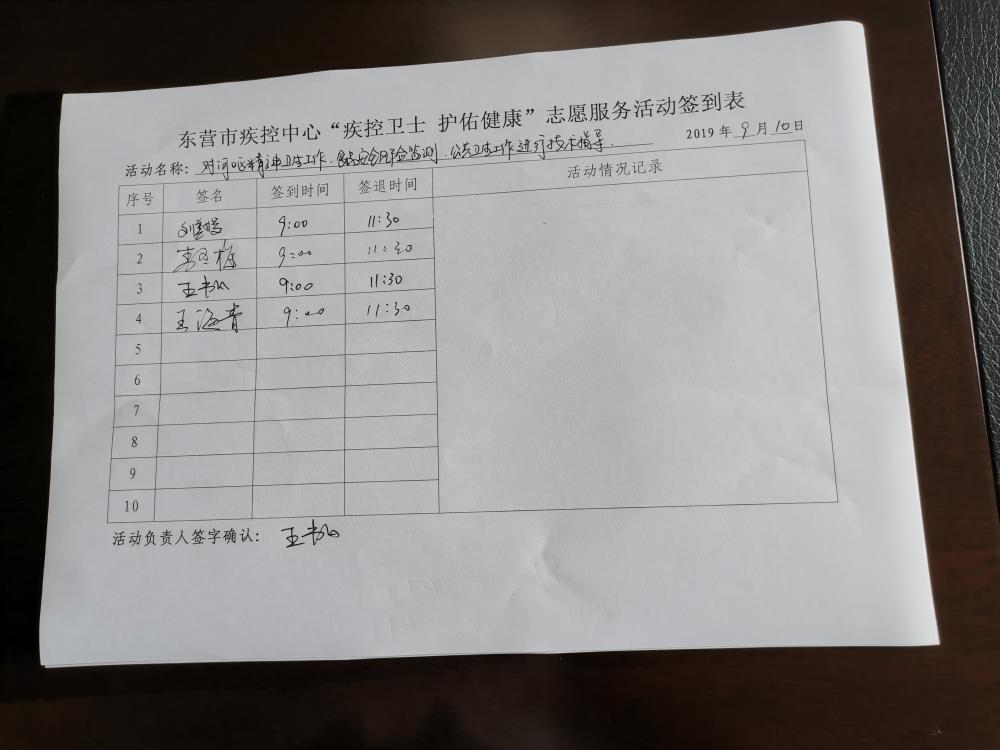 东营市疾控中心“疾控卫士 护佑健康”志愿服务活动签到表
2019 年 9 月 10 日
活动名称： 对河口精神卫生工作、食品安全风险监测、公共卫生工作进行技术指导.
序号 签名 签到时间 签退时间 活动情况记录
1 9:00 11:30
2 9:00 11:30
3 王 9:00 11:30
4 王海青 9:00 11:30
5
6
7
8
9
10
活动负责人签字确认： 王